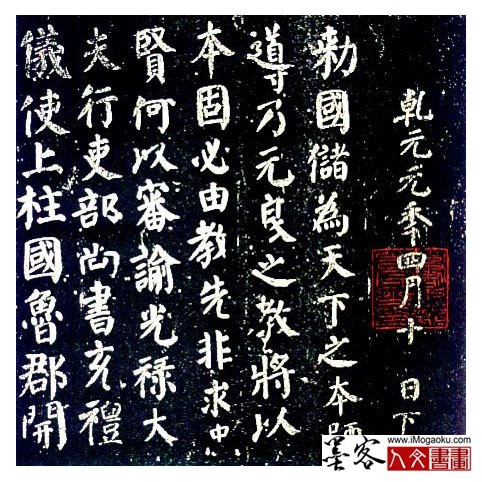 乹元元年四月十 日下
勑國儲為天下之本師
導乃元良之教將以
本固必由教先非求
賢何以審諭光禄大
夫行吏部尚書充禮
儀使上柱國魯郡開
www.iMogaoku.com
墨客 人文書畫